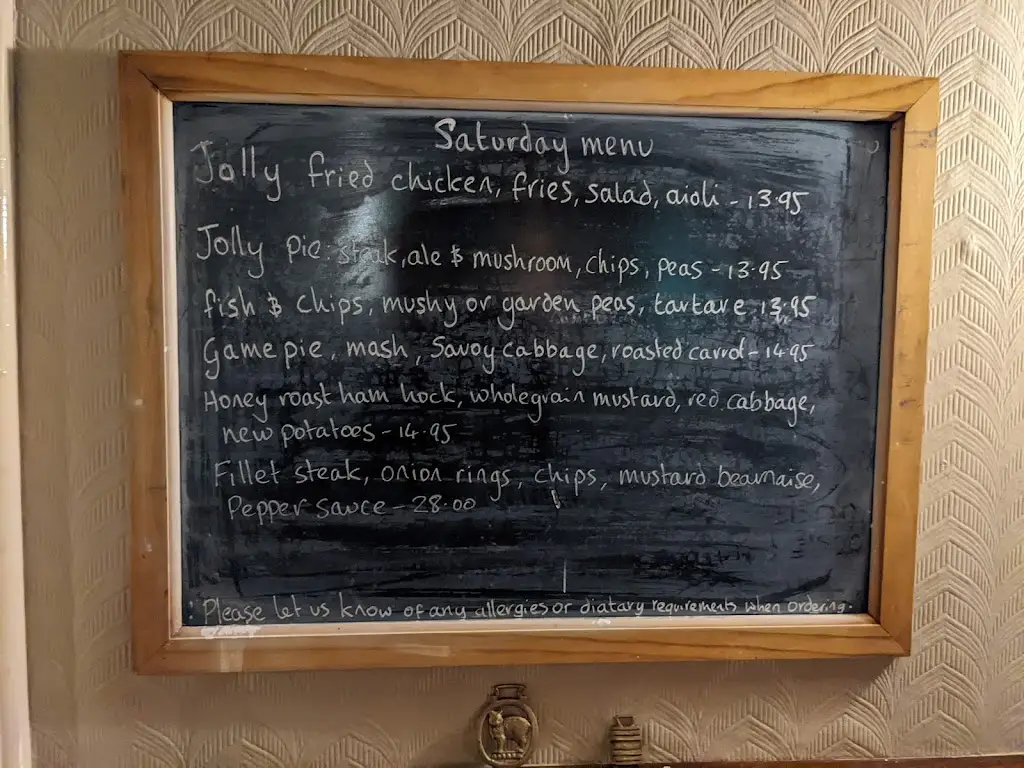 Saturday menu
Jolly fried chicken, fries, salad, aioli - 13.95
Jolly pie: steak, ale & mushroom, chips, peas - 13.95
fish & chips, mushy or garden peas, tartare 13.95
Game pie, mash, Savoy cabbage, roasted carrot - 14.95
Honey roast ham hock, wholegrain mustard, red cabbage,
new potatoes - 14.95
Fillet steak, onion rings, chips, mustard bearnaise,
Pepper sauce - 28.00
Please let us know of any allergies or diatary requirements when ordering.